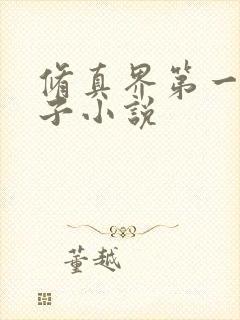 脩真界第一
子小說
董越